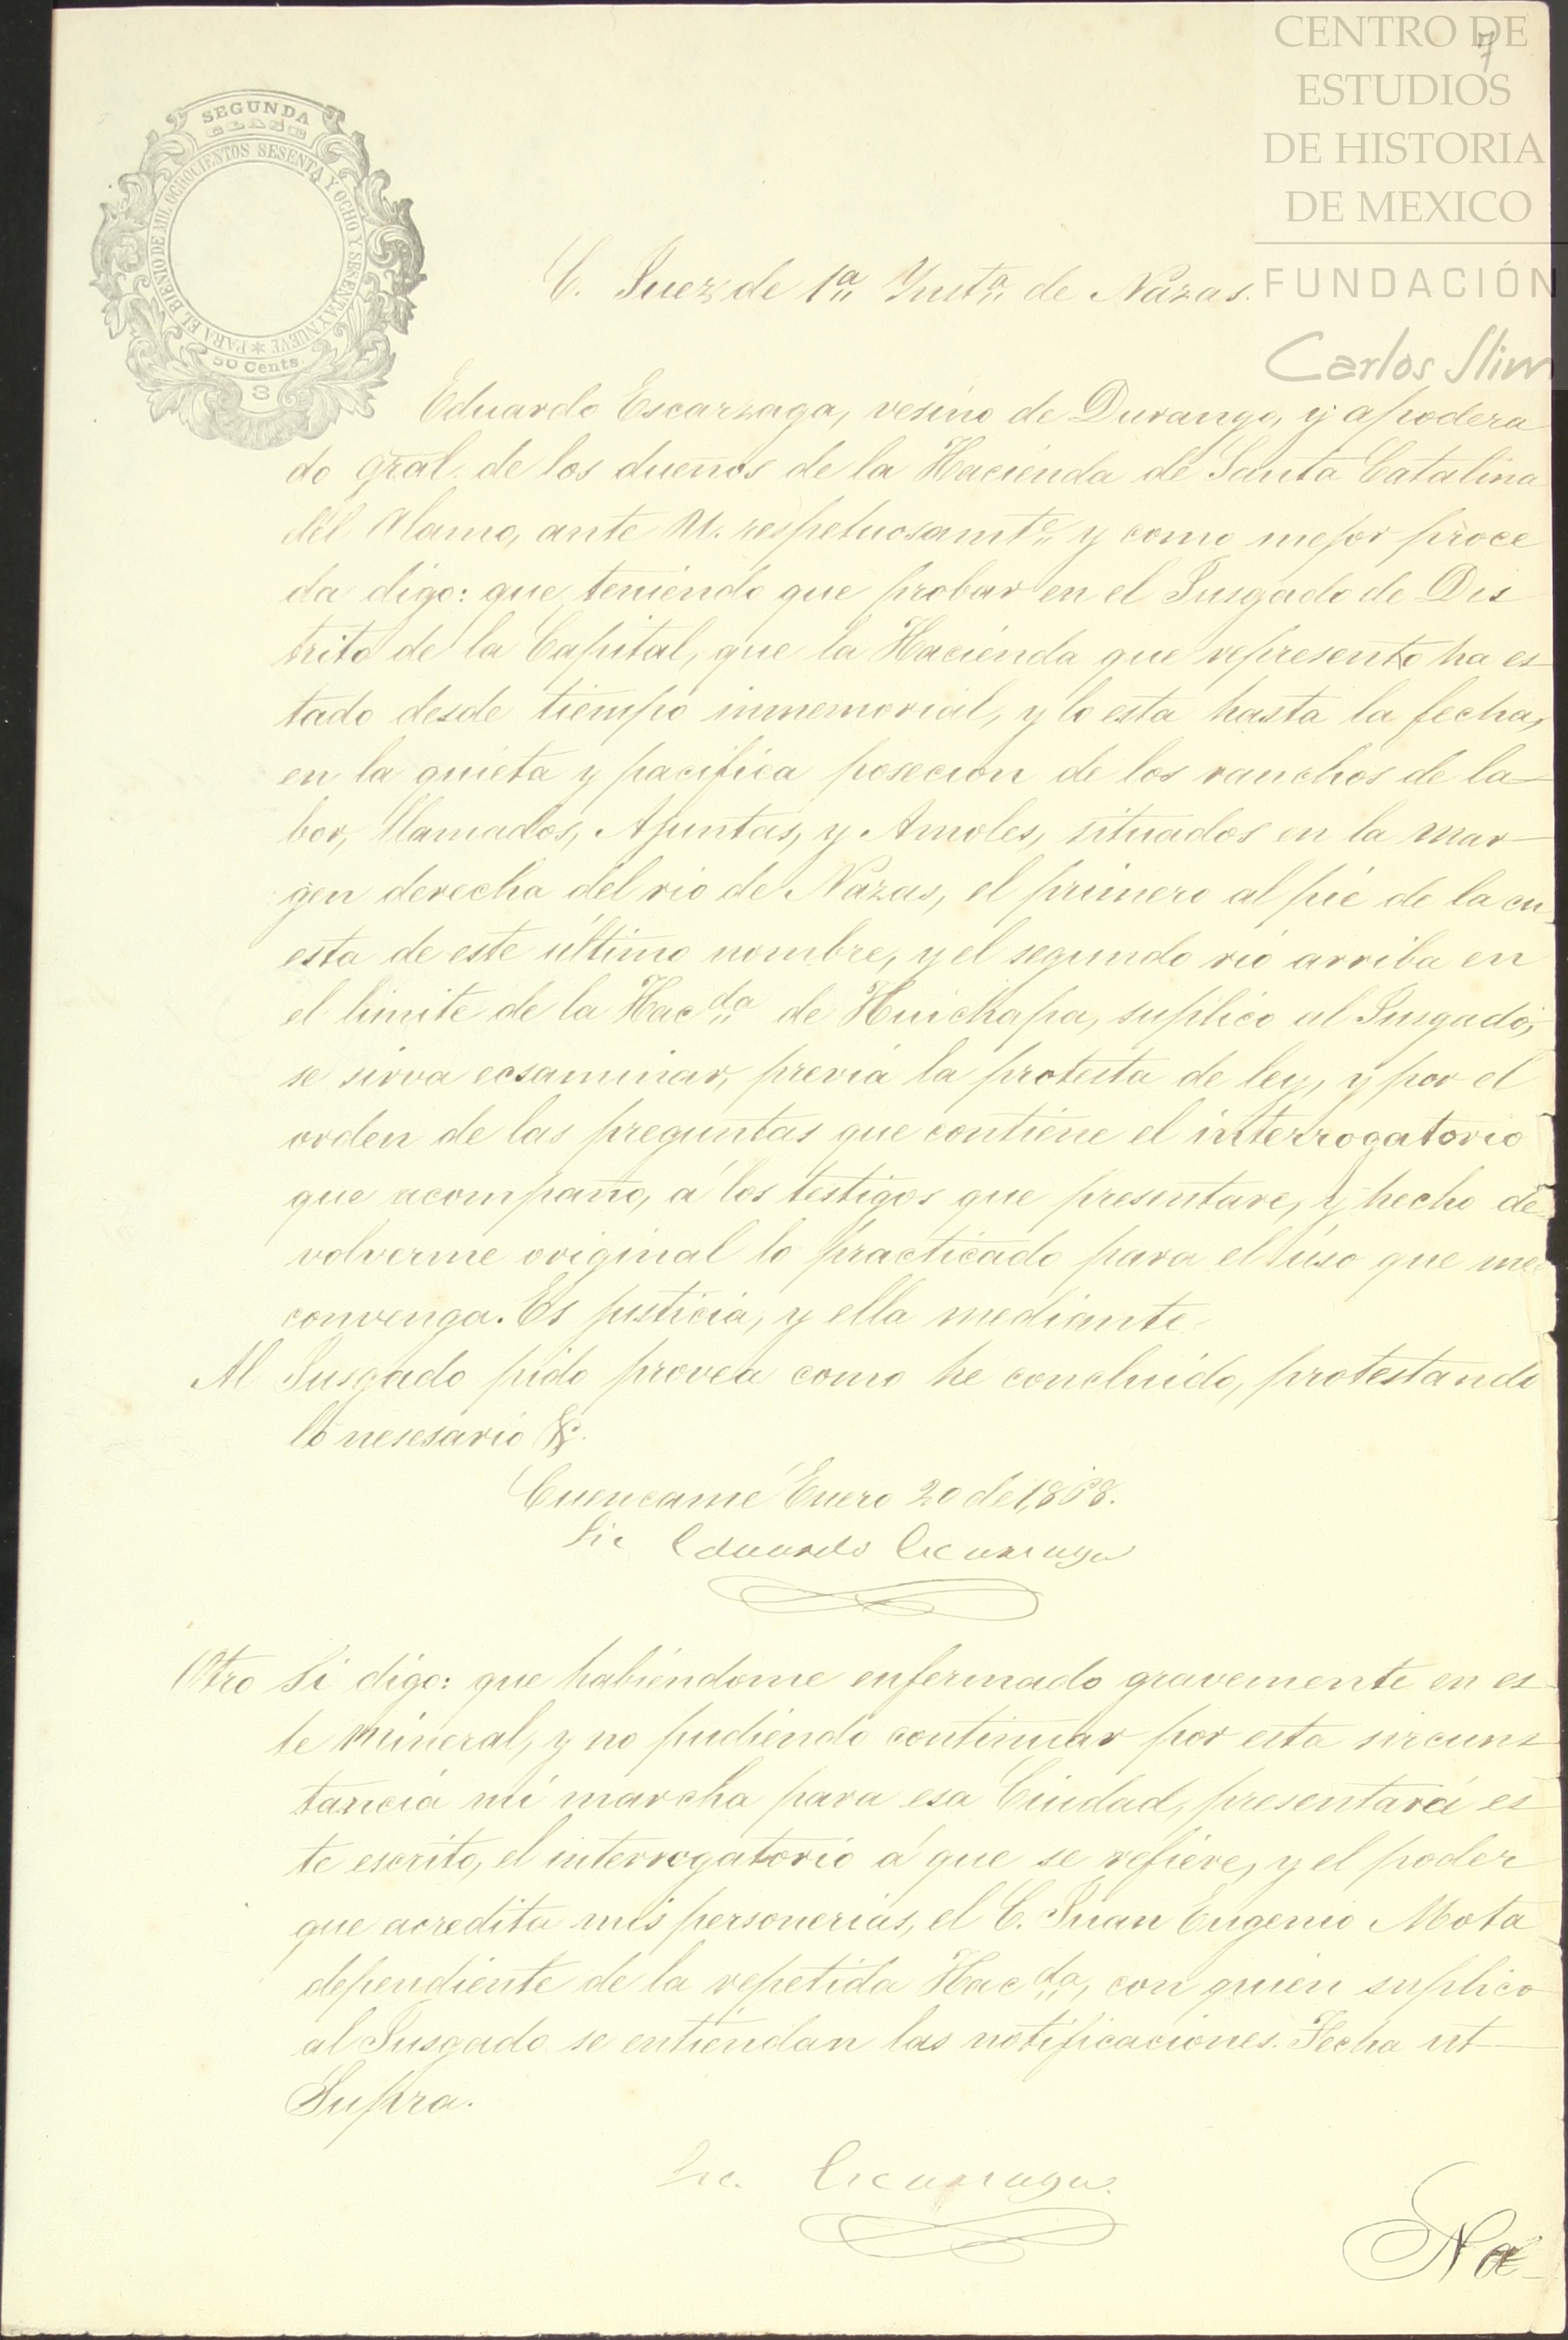 CENTRO DE
ESTUDIOS
DE HISTORIA
DE MEXICO
FUNDACIÓN
Carlos Slim
7
SEGUNDA
CLASE
PARA EL BIENIO DE MIL OCHOCIENTOS SESENTA Y OCHO Y SESENTA Y NUEVE
50 Cents.
C. Juez de 1ª Ynstª de Nazas.
Eduardo Escarzaga, vesino de Durango, y apodera
do gral. de los dueños de la Hacienda de Santa Catalina
del Alamo, ante U. respetuosamte y como mejor proce
da digo: que teniendo que probar en el Jusgado de Dis
trito de la Capital, que la Hacienda que represento ha es
tado desde tiempo inmemorial, y lo esta hasta la fecha,
en la quieta y pacifica posecion de los ranchos de la-
bor, llamados, Apuntas, y Amoles, situados en la mar-
gen derecha del rio de Nazas, el primero al pié de la cu
esta de este último nombre, y el segundo rio arriba en
el limite de la Hacda de Huichapa, suplico al Jusgado,
se sirva ecsaminar, previa la protesta de ley, y por el
orden de las preguntas que contiene el interrogatorio
que acompaño, á los testigos que presentare, y hecho de
volverme original lo practicado para el uso que me
convenga. Es justicia, y ella mediante.
Al Jusgado pido provea como he concluido, protestando
lo nesesario &.
Cuencamé Enero 20 de 1,868.
Lic Eduardo Escarzaga
Otro Si digo: que habiendome enfermado gravemente en es-
te mineral, y no pudiendo continuar por esta sircuns
tancia mi marcha para esa Ciudad, presentará es
te escrito, el interrogatorio á que se refiere, y el poder
que acredita mis personerias, el C. Juan Eugenio Mota
dependiente de la repetida Hacda, con quien suplico
al Jusgado se entiendan las notificaciones. Fecha ut
Supra.
Lic. Escarzaga.
Na-